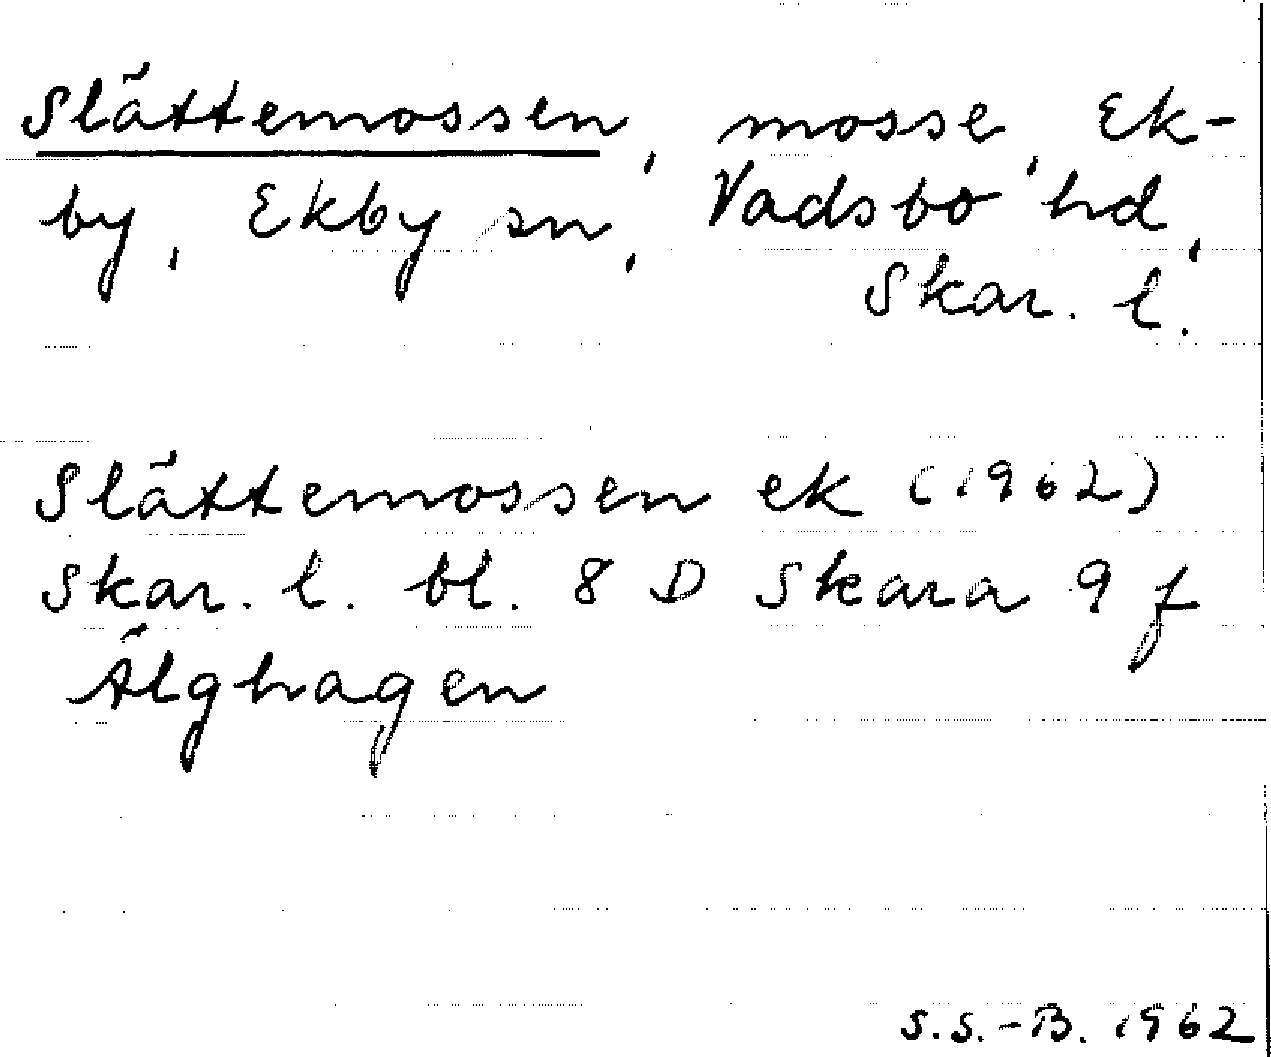 Slättemossen, mosse, Ek-
by, Ekby sn, Vadsbo hd,
Skar. l.
Slättemossen ek (1962)
Skar. l. bl. 8 D Skara 9 f
Älghagen
S.S.-B. 1962